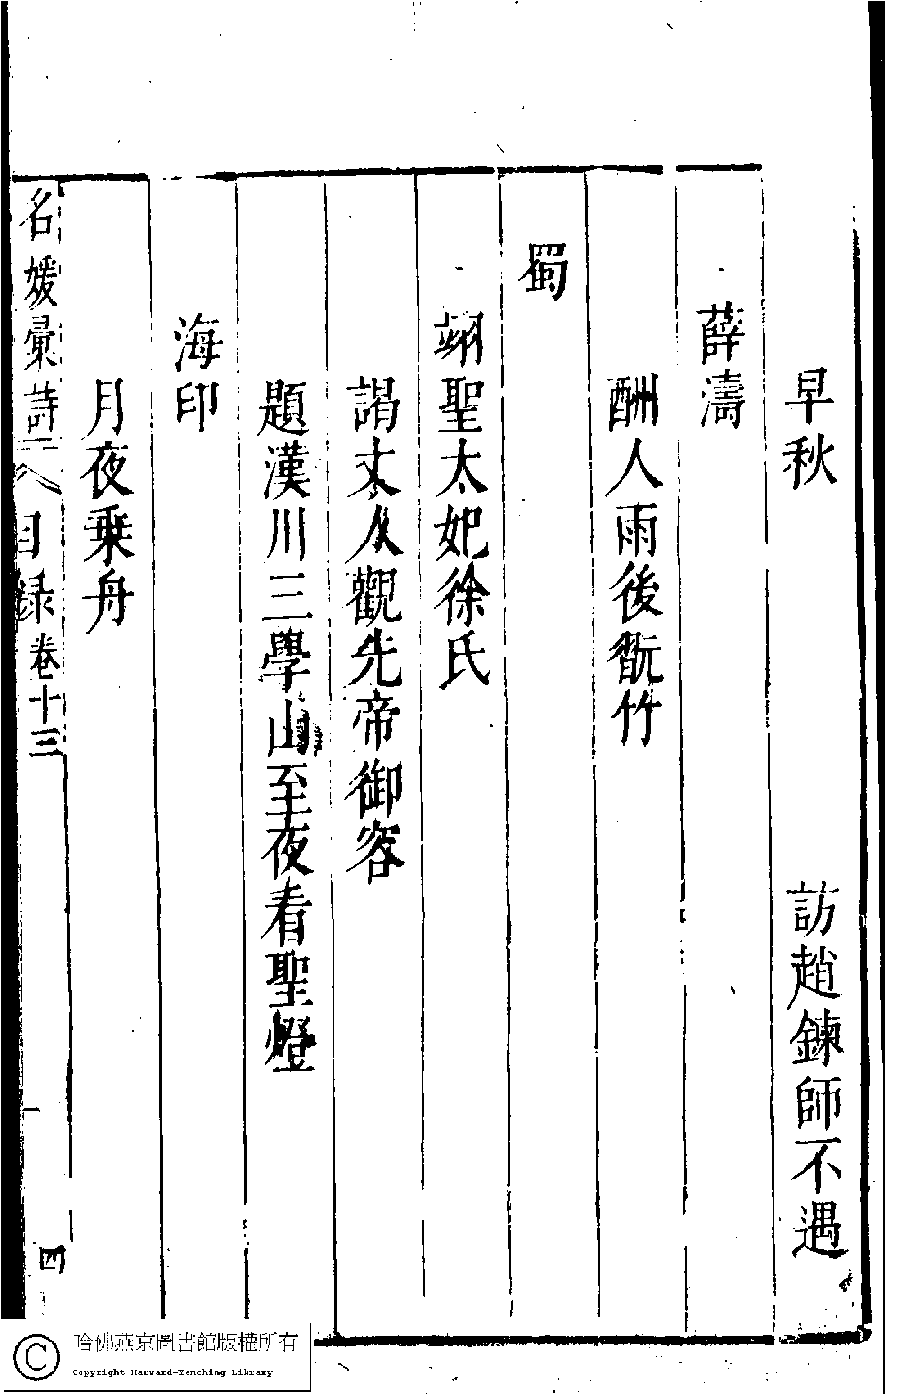 早秋 訪趙鍊師不遇
薛濤
酬人雨後翫竹
蜀
翊聖太妃徐氏
謁丈人觀先帝御容
題漢川三學山至夜看聖燈
海印
月夜乗舟
名媛彙詩 目録 卷十三 四
哈佛燕京圖書館版權所有
Copyright Harvard-Yenching Library